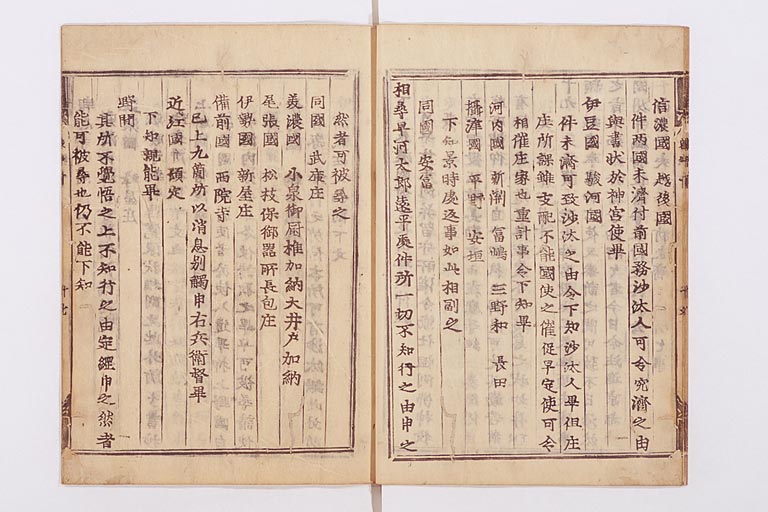 信濃國 越後國
件両國未濟付前國務沙汰人可令究濟之由
與書狀於神宮使畢
伊豆國 駿河國
件未濟可致沙汰之由令下知沙汰人畢但庄
庄所課雖支配不能國使之催促早定使可令
相催庄家也重計事令下知畢
河内國 新瀬 富嶋 三野和 長田
攝津國 平野 安垣
下知景時處返事如此相副之
同國 安富
相尋早河太郎遠平處件所一切不知行之由申之
然者可被尋之
同國 武庫庄
美濃國 小泉御厨椎加納大井戸加納
尾張國 松枝保御器所長包庄
伊勢國 新屋庄
備前國 西院寺
已上九箇所以消息別觸申右兵衛督畢
近江國 頓定
下知親能畢
野間
其所不覺悟之上不知行之由定經申之然者
能可被尋也仍不能下知